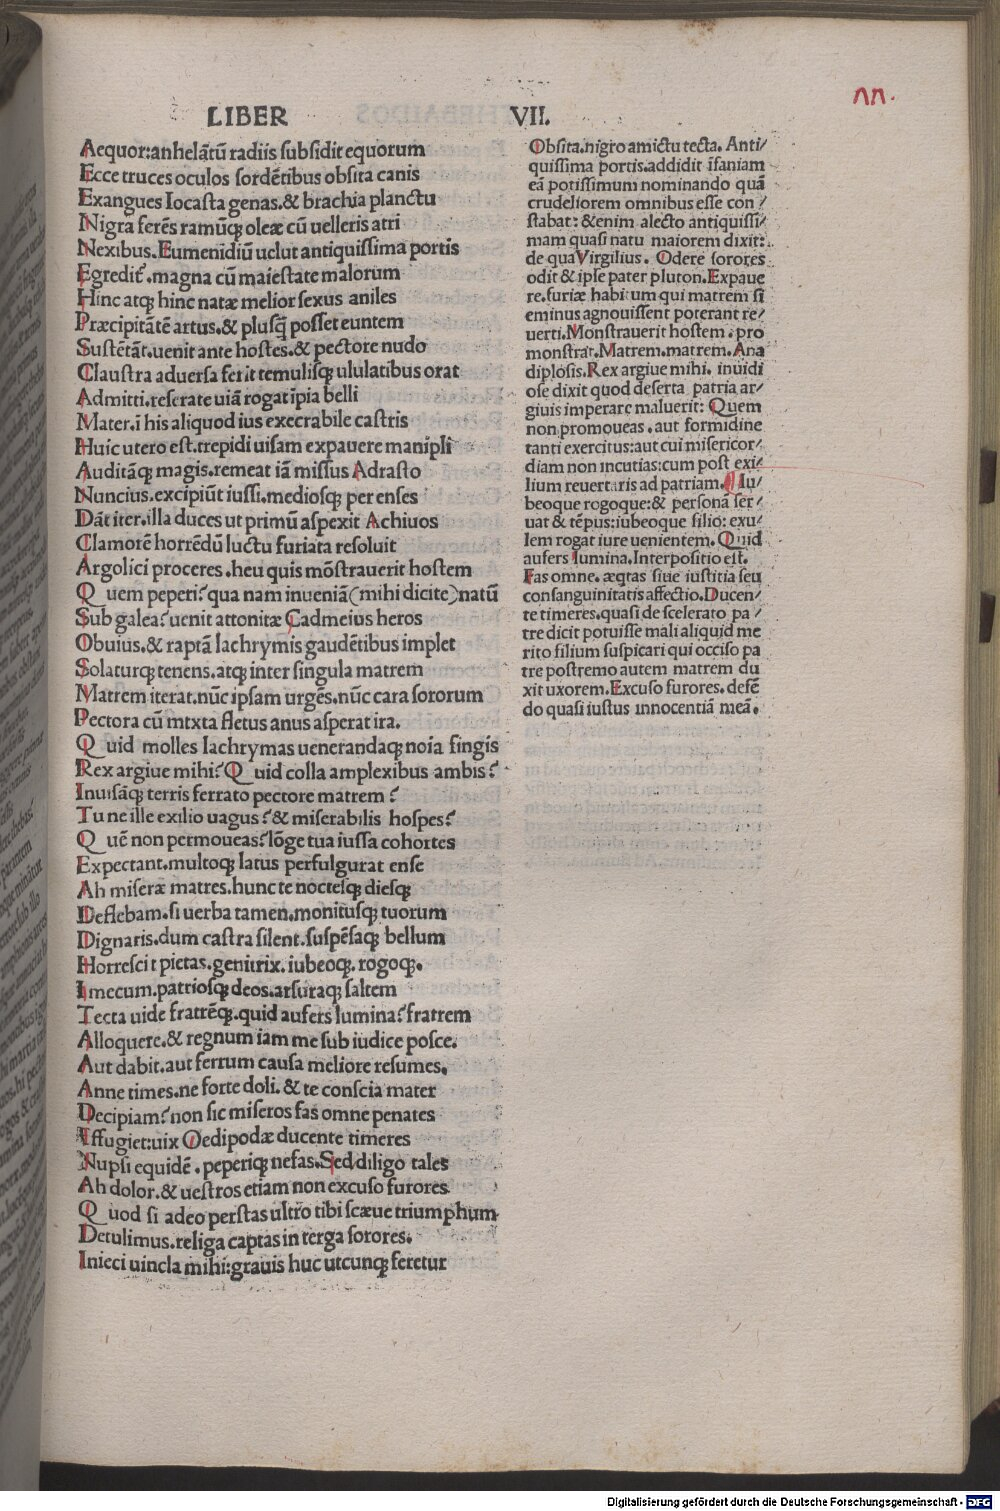 LIBER VII.
Aequor:anhelãtũ radiis subsidit equorum
Ecce truces oculos sordẽtibus obsita canis
Exangues Iocasta genas.& brachia planctu
Nigra ferẽs ramũq; oleæ cũ uelleris atri
Nexibus.Eumenidiũ uelut antiquissima portis
Egredit᷑.magna cũ maiestate malorum
Hinc atq; hinc natæ melior sexus aniles
Præcipitãtẽ artus.& plusq̃ posset euntem
Sustẽtãt.uenit ante hostes.& pectore nudo
Claustra aduersa ferit temulisq; ululatibus orat
Admitti.reserate uiã rogat ipia belli
Mater.ĩ his aliquod ius execrabile castris
Huic utero est.trepidi uisam expauere manipli
Auditãq; magis.remeat iã missus Adrasto
Nuncius.excipiũt iussi.mediosq; per enses
Dãt iter.illa duces ut primũ aspexit Achiuos
Clamorẽ horrẽdũ luctu furiata resoluit
Argolici proceres.heu quis mõstrauerit hostem
Quem peperi?qua nam inueniã(mihi dicite)natũ
Sub galea?uenit attonitæ Cadmeius heros
Obuius.& raptã lachrymis gaudẽtibus implet
Solaturq; tenens.atq; inter singula matrem
Matrem iterat.nũc ipsam urgẽs.nũc cara sororum
Pectora cũ mtxta fletus anus asperat ira.
Quid molles lachrymas uenerandaq; noia fingis
Rex argiue mihi?Quid colla amplexibus ambis?
Inuisãq; terris ferrato pectore matrem?
Tu ne ille exilio uagus?& miserabilis hospes?
Quẽ non permoueas?lõge tua iussa cohortes
Expectant.multoq; latus perfulgurat ense
Ah miseræ matres.hunc te noctesq; diesq;
Deflebam.si uerba tamen.monitusq; tuorum
Dignaris.dum castra silent.suspẽsaq; bellum
Horrescit pietas.genitrix.iubeoq;.rogoq;.
I mecum.patriosq; deos.arsuraq; saltem
Tecta uide fratrẽq;.quid aufers lumina?fratrem
Alloquere.& regnum iam me sub iudice posce.
Aut dabit.aut ferrum causa meliore resumes.
Anne times.ne forte doli.& te conscia mater
Decipiam?non sic miseros fas omne penates
Effugiet:uix Oedipodæ ducente timeres
Nupsi equidẽ.peperiq; nefas.Sed diligo tales
Ah dolor.& uestros etiam non excuso furores.
Quod si adeo perstas ultro tibi scæue triumphum
Detulimus.religa captas in terga sorores.
Inieci uincla mihi:grauis huc utcunq; feretur
Obsita.nigro amictu tecta. Anti/
quissima portis.addidit ĩsaniam
eã potissimum nominando quã
crudeliorem omnibus esse con/
stabat:&enim alecto antiquissi/
mam quasi natu maiorem dixit:
de qua Virgilius. Odere sorores
odit & ipse pater pluton.Expaue
re.furiæ habitum qui matrem si
eminus agnouissent poterant re/
uerti.Monstrauerit hostem.pro
monstrat.Matrem.matrem.Ana
diplosis.Rex argiue mihi. inuidi
ose dixit quod deserta patria ar/
giuis imperare maluerit: Quem
non promoueas.aut formidine
tanti exercitus:aut cui misericor/
diam non incutias:cum post exi/
lium reuertaris ad patriam. Iu/
beoque rogoque:& personã ser/
uat & tẽpus:iubeoque filio: exu/
lem rogat iure uenientem. Quid
aufers lumina.Interpositio est.
Fas omne.æqtas siue iustitia seu
consanguinitatis affectio.Ducen/
te timeres.quasi de scelerato pa/
tre dicit potuisse mali aliquid me
rito filium suspicari qui occiso pa
tre postremo autem matrem du
xit uxorem.Excuso furores.defẽ
do quasi iustus innocentiã meã.
Digitalisierung gefördert durch die Deutsche Forschungsgemeinschaft - DFG